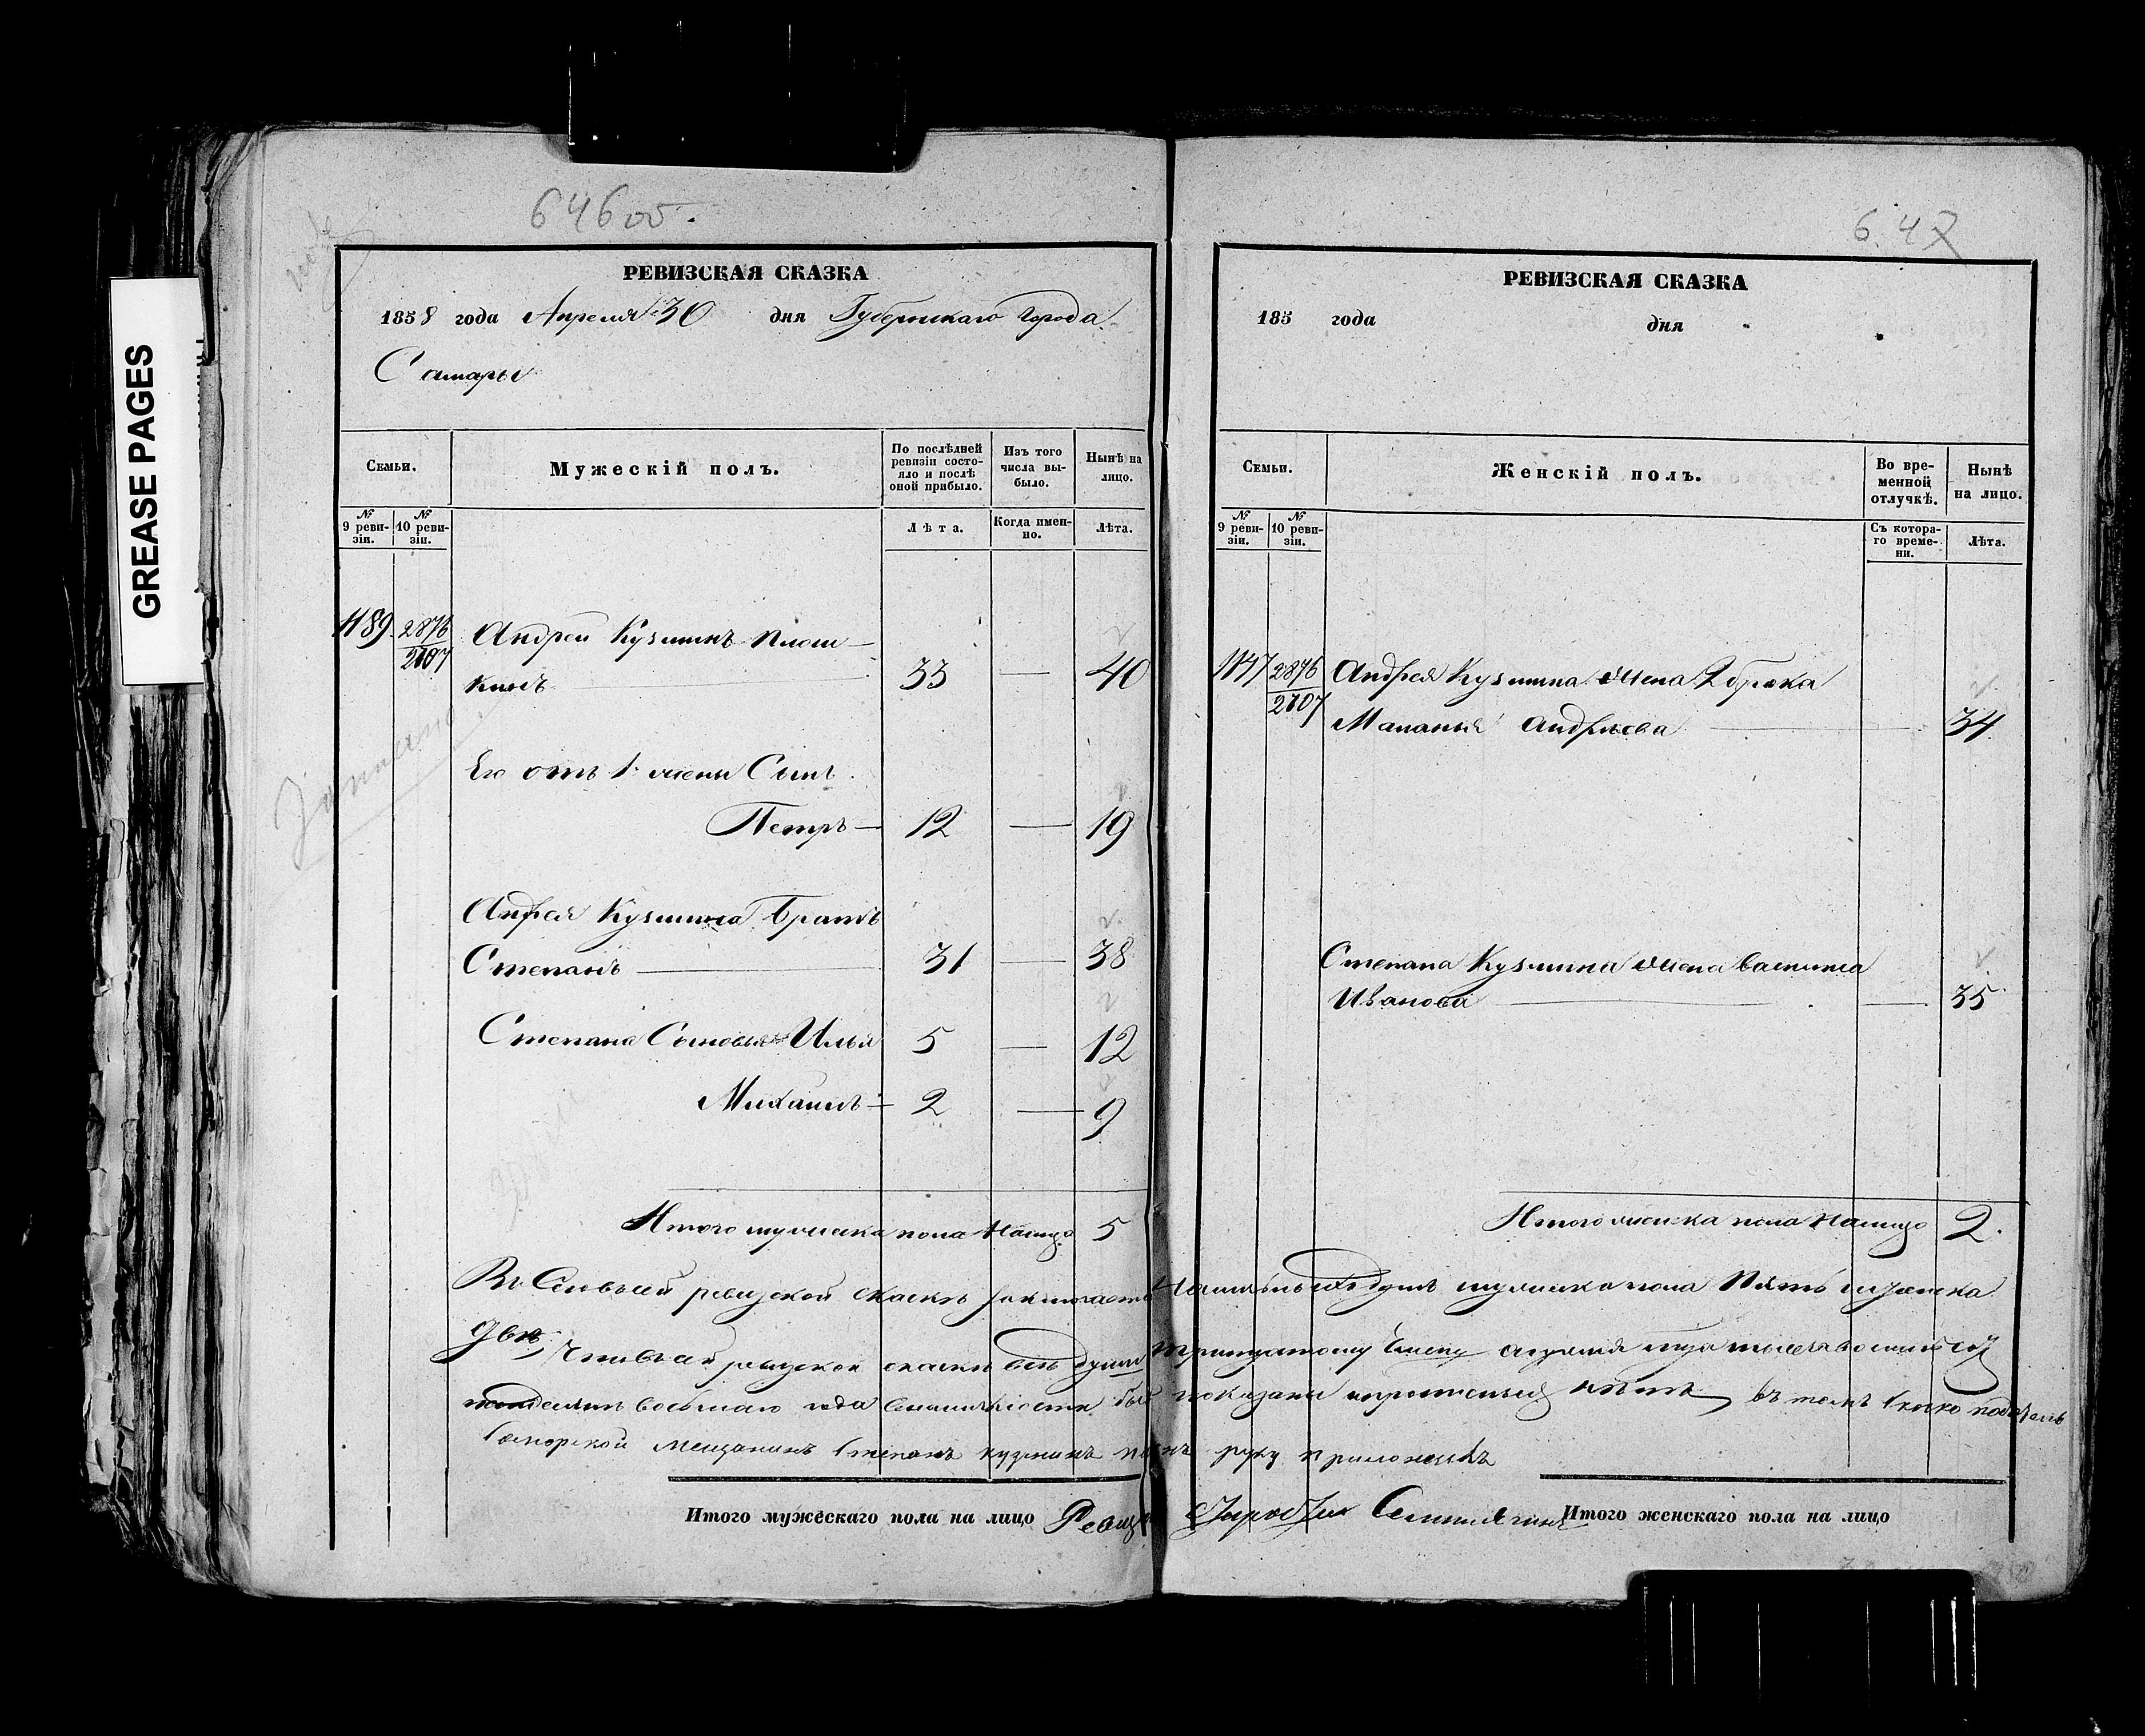 GREASE PAGES
646об.
РЕВИЗСКАЯ СКАЗКА
1858 года Апреля 30 дня Губернскаго Города
Самары
Семьи.
Мужескій полъ.
По послѣдней ревизіи состояло и послѣ оной прибыло.
Изъ того числа выбыло.
Нынѣ на лицо.
№ 9 ревизіи.
№ 10 ревизіи.
Лѣта.
Когда именно.
Лѣта.
1189 2876/2107 Андрей Кузминъ Плош-
кинъ 33 — 40
Его отъ 1 жены Сынъ
Петръ — 12 — 19
Андрея Кузмина Братъ
Степанъ — 31 — 38
Степана Сыновья Илья 5 — 12
Михаилъ — 2 — 9
Итого мужеска пола Налицо 5
647
РЕВИЗСКАЯ СКАЗКА
185 года дня
Семьи.
Женскій полъ.
Во временной отлучкѣ.
Нынѣ на лицо.
№ 9 ревизіи.
№ 10 ревизіи.
Съ котораго времени.
Лѣта.
1147 2876/2107 Андрея Кузмина жена 2 брака
Маланья Андреева — 34
Степана Кузмина жена Василиса
Иванова — — 35
Итого женска пола Налицо 2.
Въ Сей ревизской Сказкѣ заключается Наличныхъ душъ мужеска пола Пять и женска
двѣ, ревизской сказкѣ всѣ души тридцатому Числу апреля тысяча восемь сотъ
пятдесятъ восьмаго года были показаны и прописныхъ нѣтъ въ томъ
Самарской Мещанинъ Степанъ кузминъ руку приложилъ
Итого мужескаго пола на лицо
Итого женскаго пола на лицо